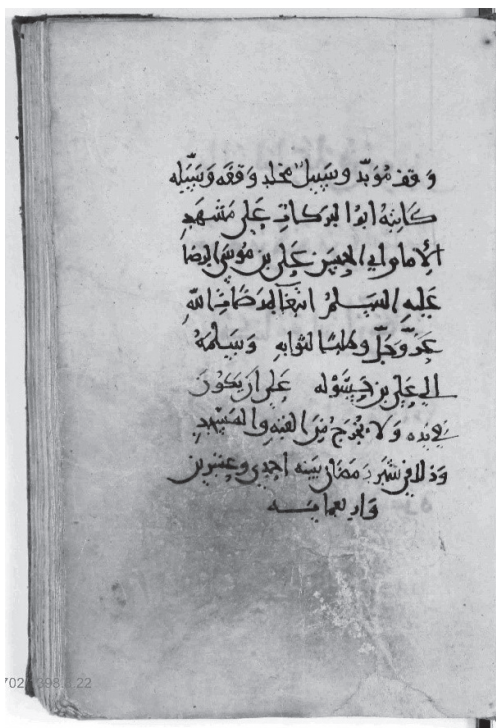 وقف مؤبد وسبيل مخلد وقفه وسبله
كاتبه ابو البركات على مشهد
الإمام أبي الحسن علي بن موسى الرضا
عليه السلم ابتغا لمرضات الله
عز وجل وطلبا لثوابه وسلمه
الى علي بن حسوله على أن يكون
بيده ولا يخرج من القبه والمشهد
وذلك في شهر رمضان سنه احدى وعشرين
واربعمايه
702 1398.8.22